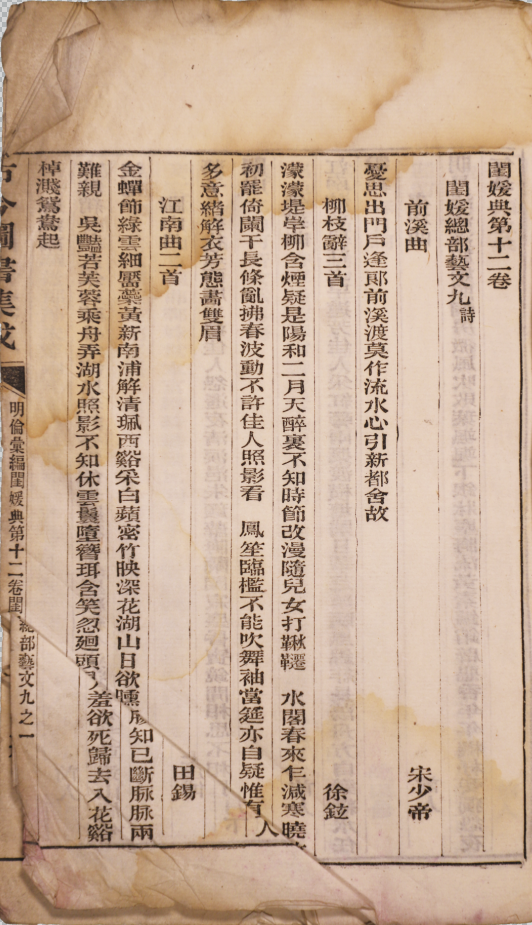 閨媛典第十二卷
閨媛總部藝文九詩
前溪曲 宋少帝
憂思出門戶逢郞前溪渡莫作流水心引新都舍故
柳枝辭三首 徐鉉
濛濛堤岸柳含煙疑是陽和二月天醉裏不知時節改漫隨兒女打鞦韆 水閣春來乍減寒曉
初罷倚闌干長條亂拂春波動不許佳人照影看 鳳笙臨檻不能吹舞袖當筵亦自疑惟有人
多意緒解衣芳態畫雙眉
江南曲二首 田錫
金蟬飾綠雲細靨蘂黃新南浦解清珮西谿采白蘋密竹映深花湖山日欲曛 知已斷脉脉兩
難親 吳豔若芙蓉乘舟弄湖水照影不知休雲鬟墮簪珥含笑忽廻頭見人羞欲死歸去入花谿
棹濺鴛鴦起
古今圖書集成
明倫彙編閨媛典第十二卷閨 總部藝文九之一